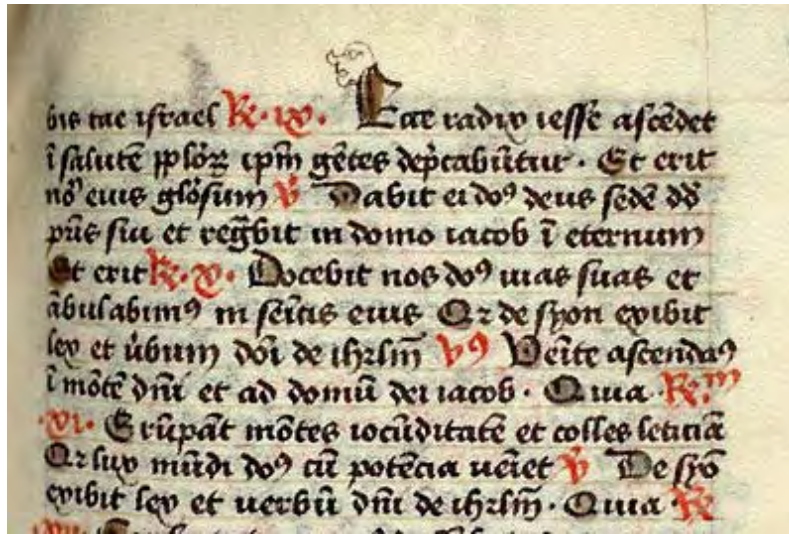 bis tue israel R. ix. Ecce radix iesse ascēdet
ī salutē pplōꝝ ipm̄ gētes dep̄cabūtur. Et erit
nō eius glōsum v̄ Dabit ei doꝰ deus sedē dd̄
pr̄is sui et regn̄bit in domo iacob ī eternum
Et erit R. x. Docebit nos doꝰ uias suas et
ābulabimꝰ in semītis eius Qr de syon exibit
lex et ūbum dn̄i de ihrlm̄ vꝰ Ueīte ascendaꝰ
ī mōtē dn̄i et ad domū dei iacob. Quia. R. m
.vi. Erūpāt mōtes iocūditatē et colles leticiā
Qr lux mūdi doꝰ cū potēcia ueīet v̄ De syō
exibit lex et uerbū dn̄i de ihrlm̄. Quia. R